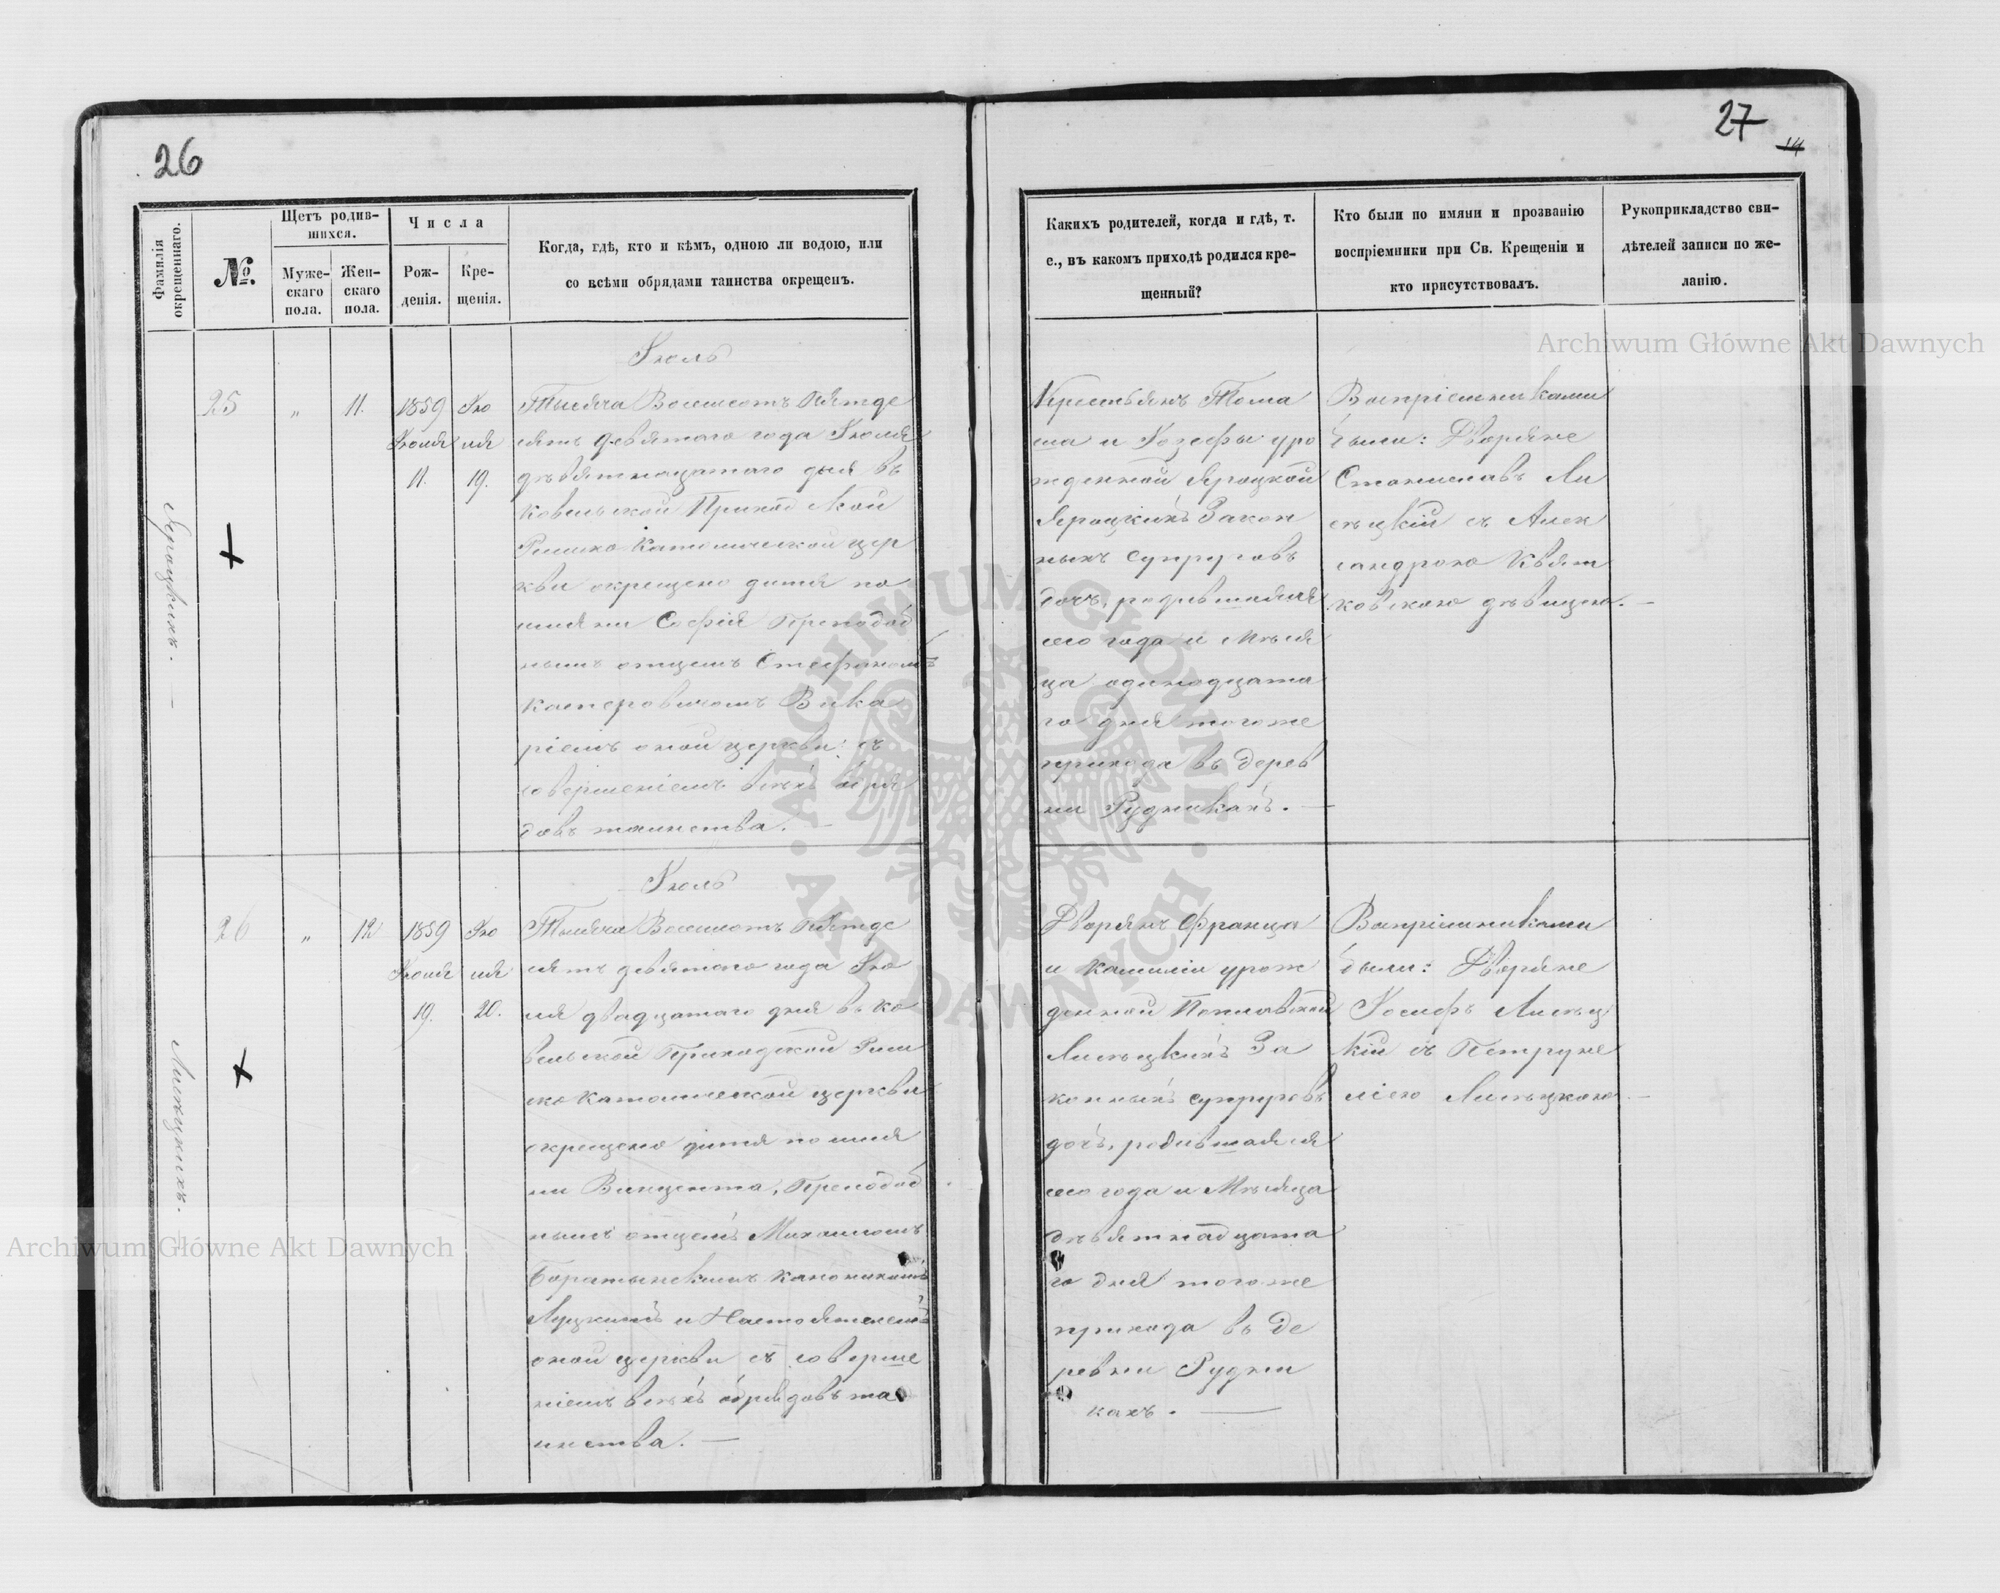 26
Фамилія
окрещеннаго.
№.
Щетъ родив-
шихся.
Муже-
скаго
пола.
Жен-
скаго
пола.
Числа
Рож-
денія.
Кре-
щенія.
Когда, гдѣ, кто и кѣмъ, одною ли водою, или
со всѣми обрядами таинства окрещенъ.
Яроцкихъ. —
25
„
11.
1859
Іюля
11.
Ію
ля
19.
Іюль
Тысяча Восемсотъ Пятде
сятъ девятого года Іюля
девятнацатого дня въ
Ковельской Приход ской
Римско Католической цер
кви окрещено дитя по
имяни Софія Преподоб
нымъ отцемъ Стефаномъ
Касперовичомъ Вика
ріемъ оной церкви: съ
совершеніемъ всѣхъ обря
довъ таинства. —
Лисѣцкихъ. —
26
„
12
1859
Іюля
19.
Ію
ля
20.
Іюль
Тысяча Восемсотъ Пятде
сятъ девятого года Ію
ля двадцатаго дня въ Ко
вельской Приходской Рим
ско Католической церкви
окрещено дитя по имя
ни Винцента, Преподоб
нымъ отцемъ Михаиломъ
Баратынскимъ Каноникомъ
Луцкимъ и Настоятелемъ
оной церкви съ соверше
ніемъ всѣхъ обрядовъ та
инства. —
27
14
Какихъ родителей, когда и гдѣ, т.
е., въ какомъ приходѣ родился кре-
щенный?
Кто были по имяни и прозванію
воспріемники при Св. Крещеніи и
кто присутствовалъ.
Рукоприкладство сви-
дѣтелей записи по же-
ланію.
Крестьянъ Тома
ша и Іозефы уро
жденной Яроцкой
Яроцкихъ Закон
ныхъ супруговъ
дочь, родившаяся
сего года и мѣся
ца одинадцата
го дня тогоже
прихода въ дерев
ни Рудникахъ. —
Воспріемниками
были: Дворяне
Станиславъ Ли
сѣцкій съ Алек
сандрою Квят
ковскою дѣвицею. —
Дворянъ Франца
и Камиліи урож
денной Поплавской
Лисѣцкихъ За
конныхъ супруговъ
дочь, родившаяся
сего года и Мѣсяца
девятнадцата
го дня тогоже
прихода въ де
ревни Рудни
кахъ. —
Воспріемниками
были: Дворяне
Іосифъ Лисѣц
кій съ Петруне
лією Лисѣцкою —
Archiwum Główne Akt Dawnych
Archiwum Główne Akt Dawnych
ARCHIWUM GŁÓWNE · AKT DAWNYCH ·